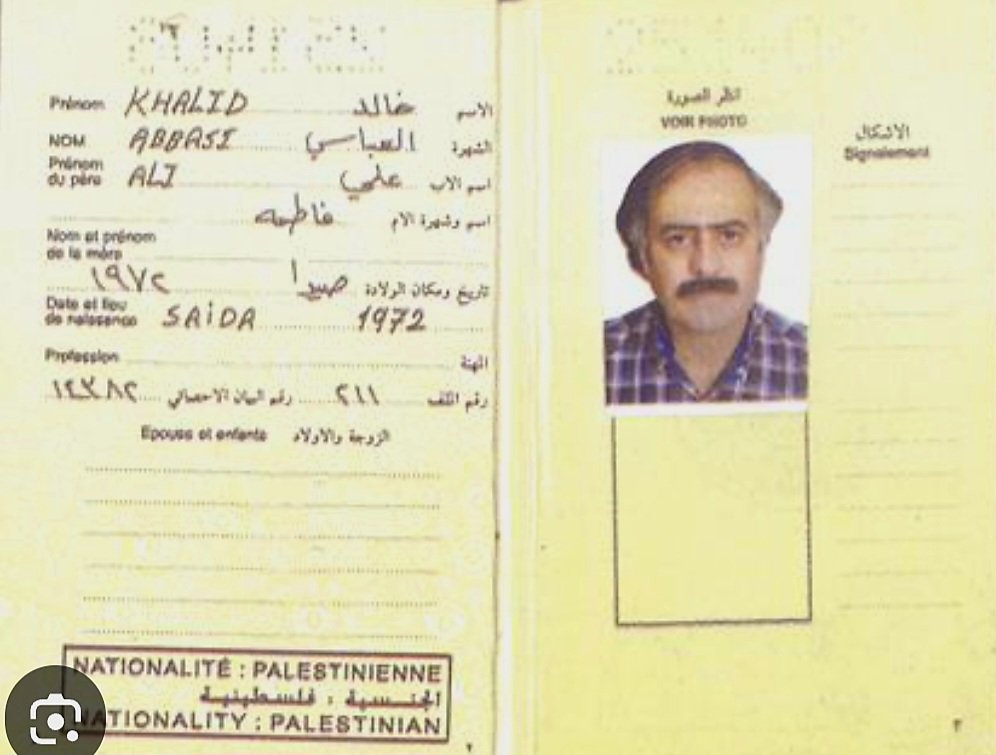 Prénom KHALID خالد الاسم
NOM ABBASI العباسي الشهرة
Prénom du père ALI علي اسم الاب
فاطمه اسم وشهرة الام
Nom et prénom
de la mère
١٩٧٢ صيدا تاريخ ومكان الولادة
Date et lieu
de naissance SAIDA 1972
Profession المهنة
رقم الملف ٢١١ رقم البيان الاحصائي
Epouse et enfants الزوجة والاولاد
NATIONALITÉ : PALESTINIENNE
الجنسية : فلسطينية
NATIONALITY : PALESTINIAN
٢
انظر الصورة
VOIR PHOTO
الاشكال
Signalement
٣